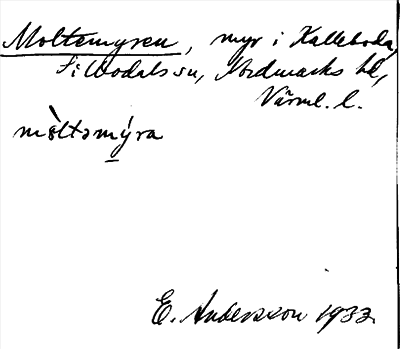 Moltemyren, myr i Kalleboda,
Sillbodals sn, Nordmarks hd,
Värml. l.
mòltəmýra
E. Andersson 1933.